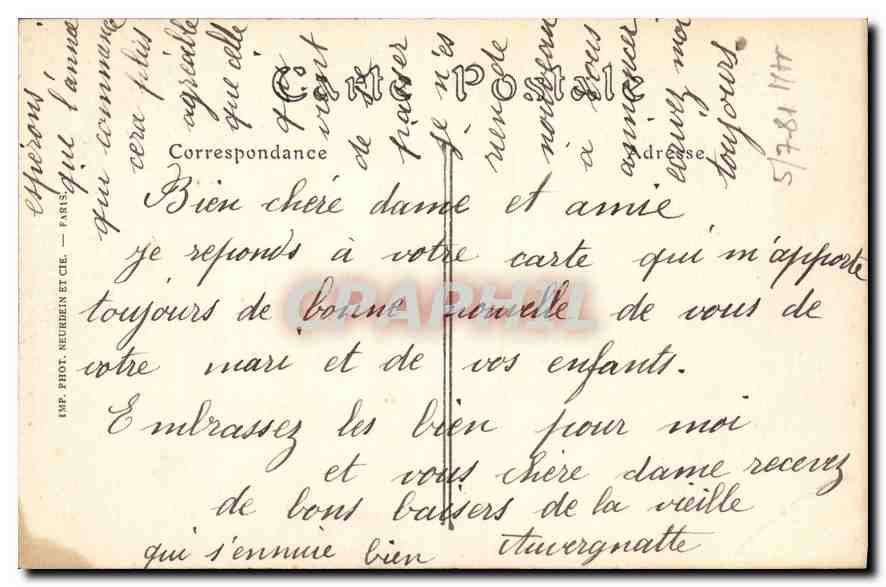 Carte Postale
Correspondance
Adresse
Bien chéré dame et amie
je reponds à votre carte qui m'apporte
toujours de bonne nouvelle de vous de
votre mari et de vos enfants.
Embrassez les bien pour moi
et vous chère dame recevez
de bons baisers de la vieille
qui s'ennuie bien Auvergnatte
espérons
que l'année
qui commence
cera plus
agréable
que celle
qui
vient
de se
passer
je n'es
rien de
nouveau
à vous
annoncer
écrivez moi
toujours.
IMP. PHOT. NEURDEIN ET CIE. — PARIS.
CPAPHIL